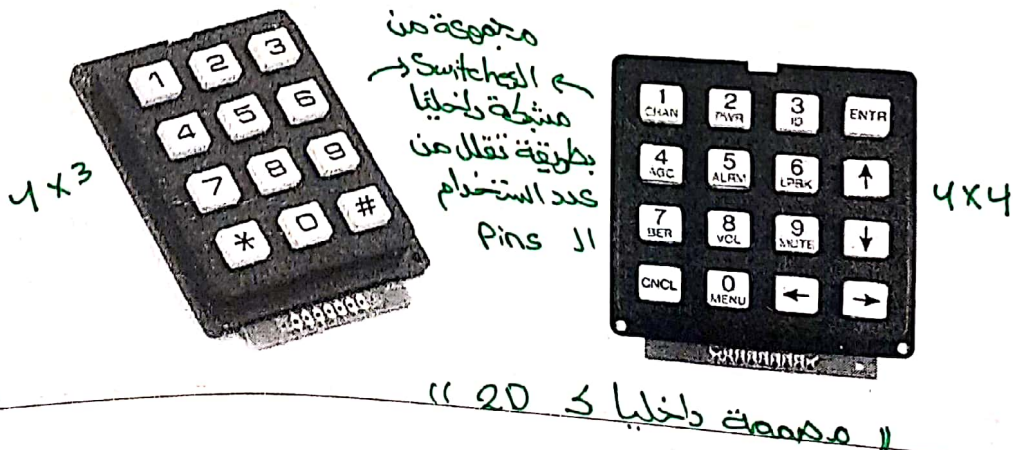 1 2 3
4 5 6
7 8 9
* 0 #
4x3
مجموعة من
ال Switches
متشبكة داخليا
بطريقة تقلل من
عدد استخدام
ال Pins
1 CHAN 2 PWR 3 IQ ENTR
4 AGC 5 ALRM 6 LPBK ↑
7 BER 8 VOL 9 MUTE ↓
CNCL 0 MENU ← →
4x4
" مصممة داخليا ك 2D "